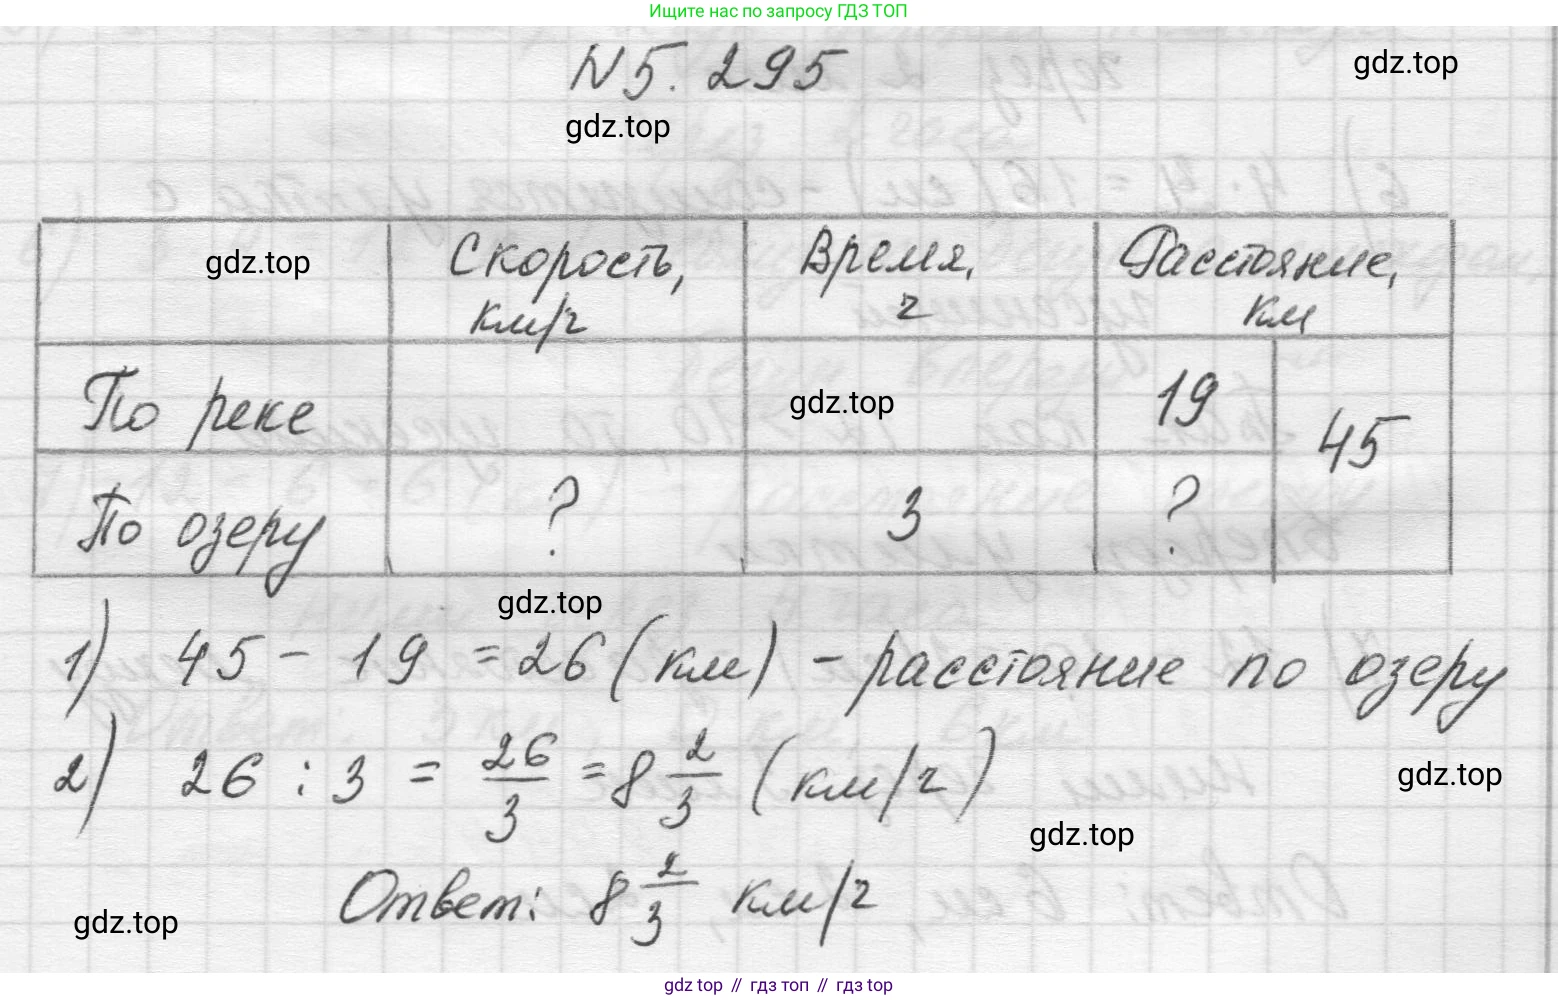 Ищите нас по запросу ГДЗ ТОП
N5. 295
gdz.top
gdz.top
gdz.top
Скорость, км/ч
Время, ч
Расстояние, км
По реке
gdz.top
19
45
По озеру
?
3
?
gdz.top
1) 45 - 19 = 26 (км) - расстояние по озеру
2) 26 : 3 = 26/3 = 8 2/3 (км/ч)
gdz.top
gdz.top
Ответ: 8 2/3 км/ч
gdz.top
gdz.top // гдз топ // гдз.top